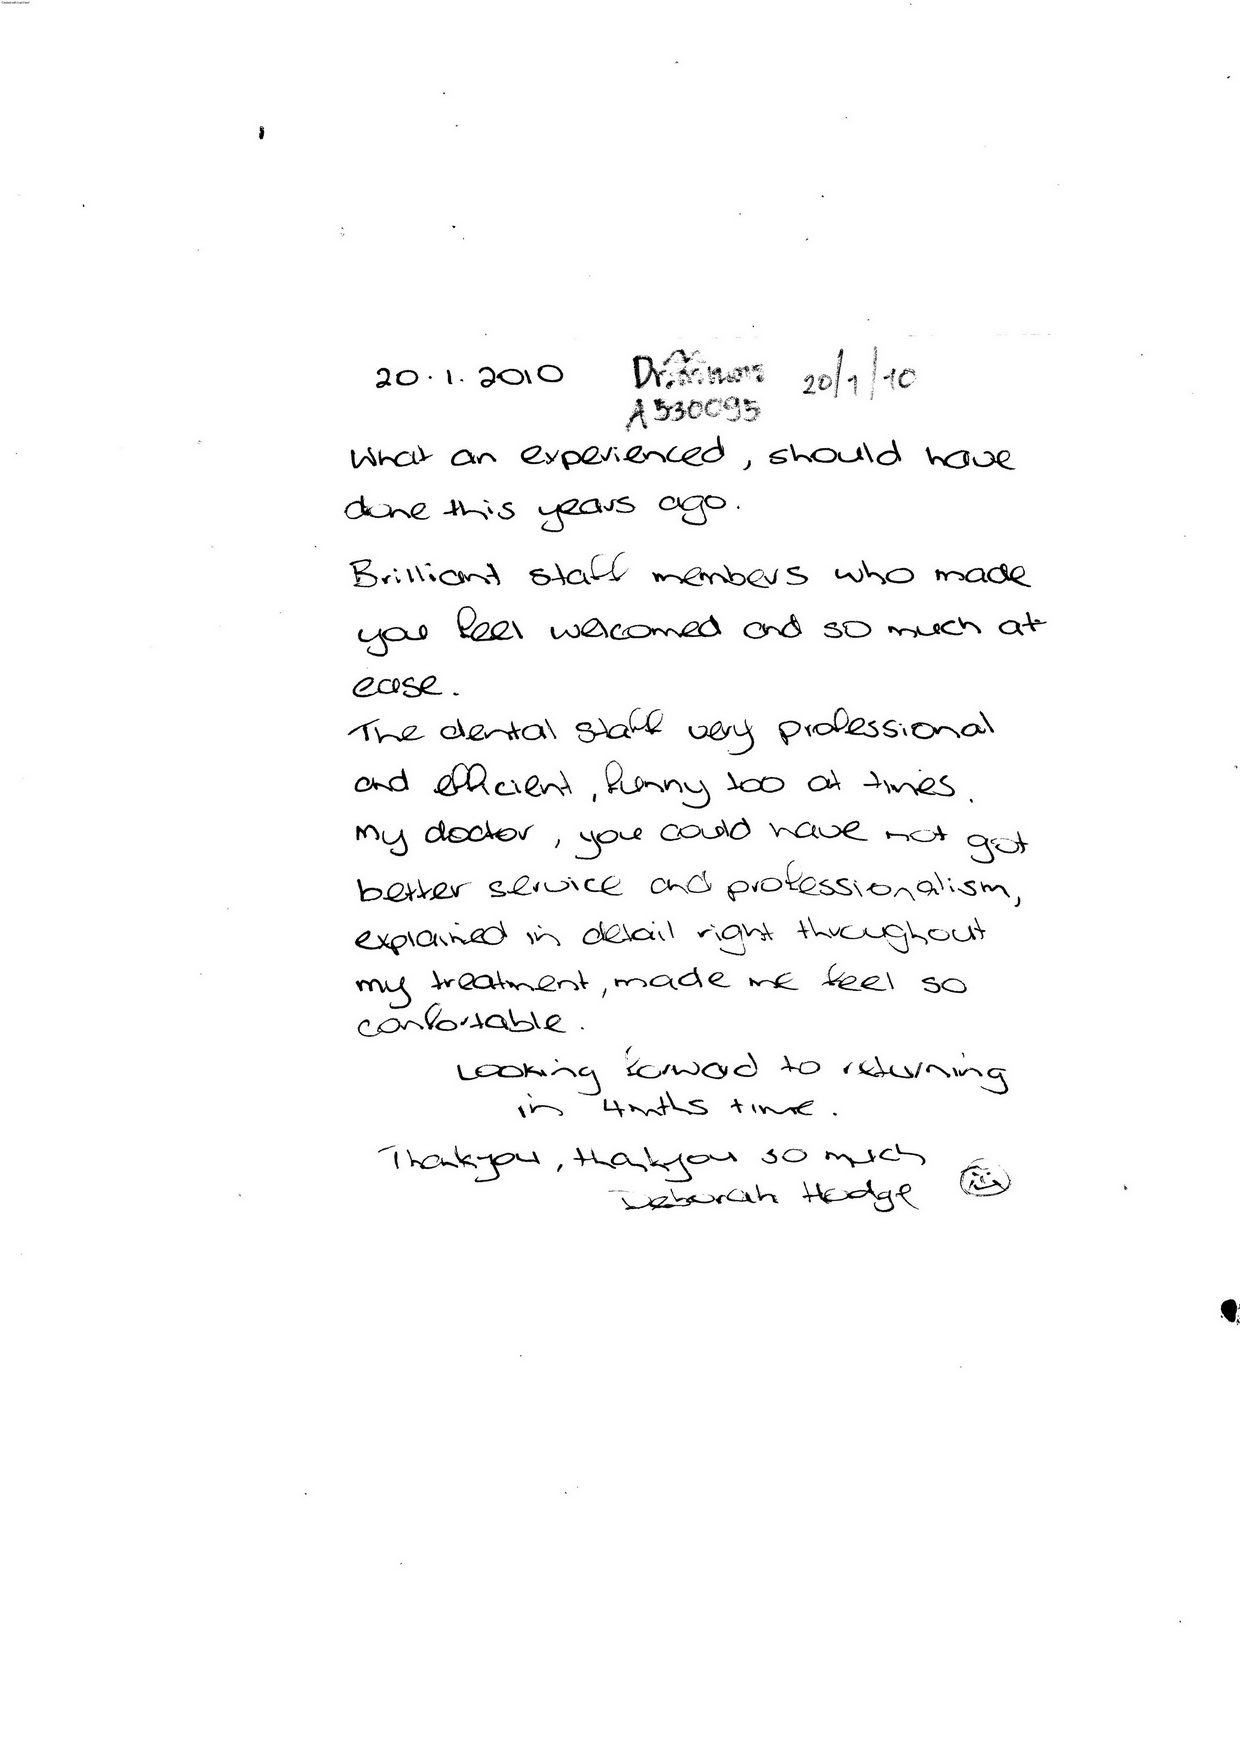 20.1.2010 Dr. 20/1/10
A530095
What an experienced, should have
done this years ago.
Brilliant staff members who made
you feel welcomed and so much at
ease.
The dental staff very professional
and efficient, funny too at times.
My doctor, you could have not got
better service and professionalism,
explained in detail right throughout
my treatment, made me feel so
confortable.
Looking forward to returning
in 4mths time.
Thankyou, thankyou so much
Deborah Hodge